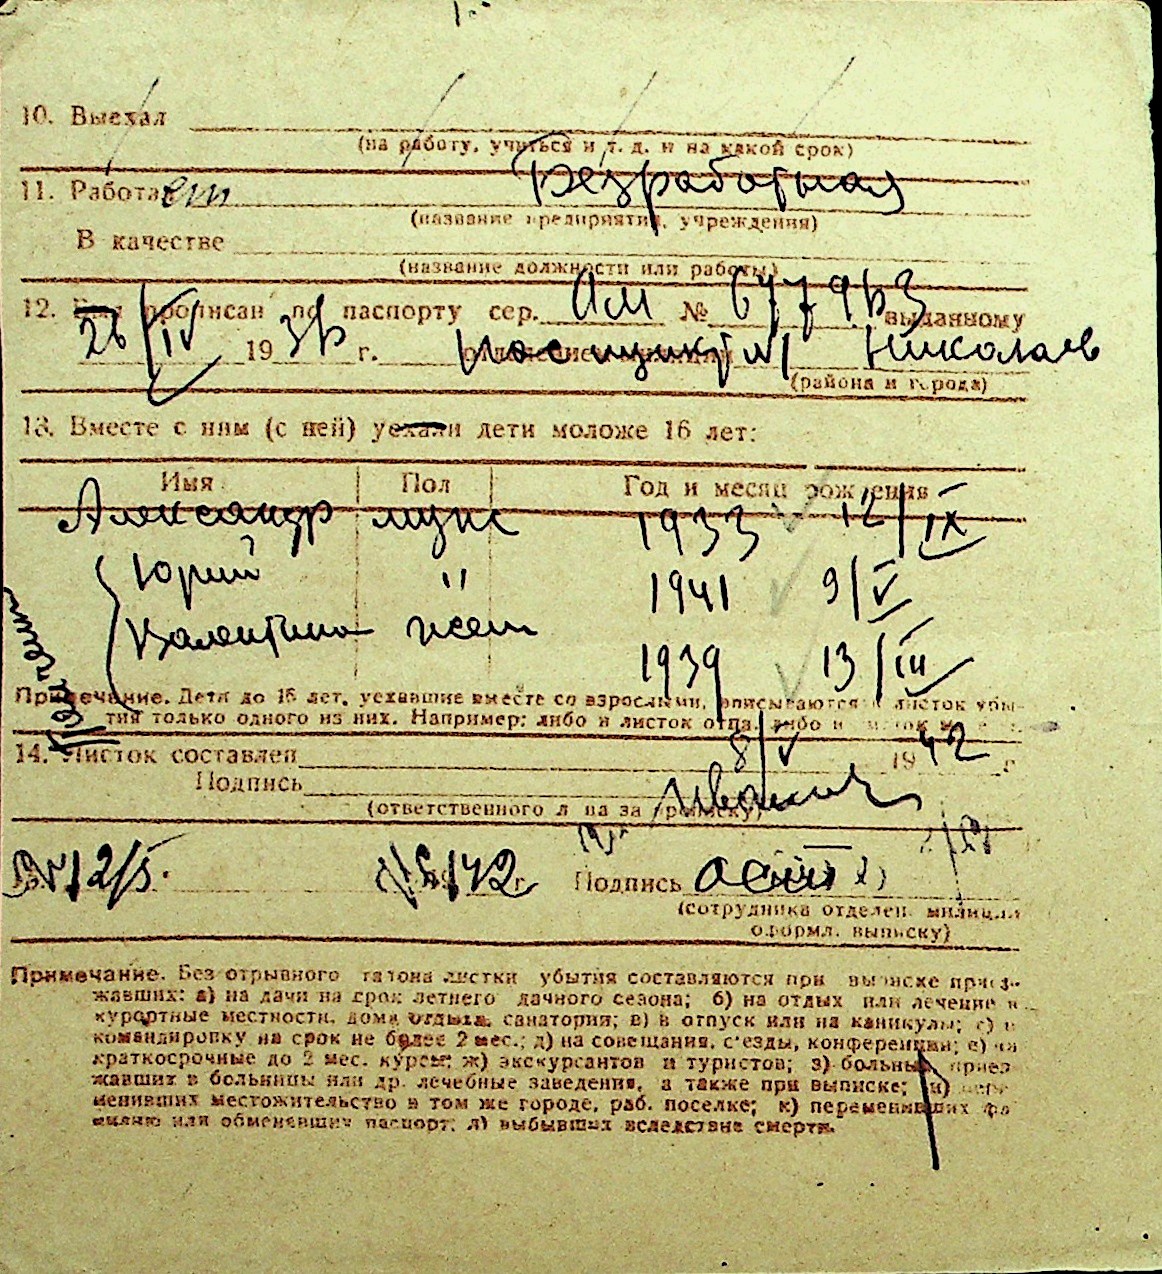 10. Выехал
(на работу, учиться и т. д. и на какой срок)
Безработная
11. Работает
(название предприятия, учреждения)
В качестве
(название должности или работы)
12. Был прописан по паспорту сер. АМ № выданному
26/IV 1936 г. отделением милиции №1 Николаев
(района и города)
13. Вместе с ним (с ней) уехали дети моложе 16 лет:
Имя Пол Год и месяц рождения
Александр мужс 1933 12/IX
Юрий " 1941 9/V
Валентина жен 1939 13/III
Примечание. Дети до 16 лет, уехавшие вместе со взрослыми, вписываются в листок убы-
тия только одного из них. Например: либо в листок отца, либо в листок
14. Листок составлен 8/V 1942 г
Подпись
(ответственного лица за прописку)
2/5 42 г Подпись
(сотрудника отделен. милиции
оформл. выписку)
Примечание. Без отрывного талона листки убытия составляются при выписке приез-
жавших: а) на дачи на срок летнего дачного сезона; б) на отдых или лечение в
курортные местности, дома отдыха, санатория; в) в отпуск или на каникулы; г) в
командировку на срок не более 2 мес.; д) на совещания, с'езды, конференции; е) на
краткосрочные до 2 мес. курсы; ж) экскурсантов и туристов; з) больных, приез-
жавших в больницы или др. лечебные заведения, а также при выписке; и) пере-
менивших местожительство в том же городе, раб. поселке; к) переменивших фа-
милию или обменявших паспорт; л) выбывших вследствие смерти.